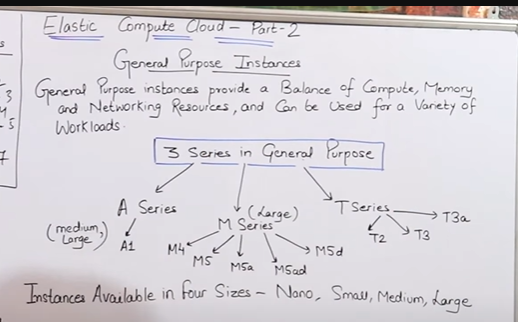 Elastic Compute Cloud - Part-2
General Purpose Instances
General Purpose instances provide a Balance of Compute, Memory
and Networking Resources, and Can be Used for a Variety of
Workloads.
3 Series in General Purpose
A Series
(medium, Large)
A1
(Large)
M Series
M4
M5
M5a
M5ad
M5d
T Series
T2
T3
T3a
Instances Available in Four Sizes - Nano, Small, Medium, Large
s
3
4
5
7